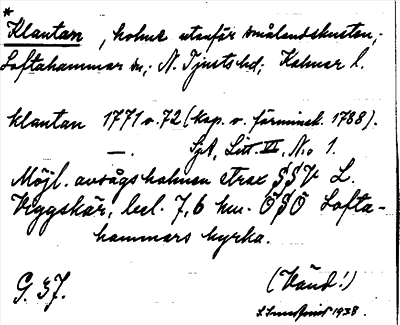 *
Klantan, holme utanför smålandskusten,
Loftahammar sn, N. Tjusts hd, Kalmar l.
klantan 1771 v. 72 (kap. v. förminsk. 1788).
—. SjA, Litt. VI, No 1.
Möjl. avsågs holmen strax SSV L.
Väggskär, bel. 7,6 km. OSO Lofta-
hammars kyrka.
G. 37. (Vänd!)
1938.